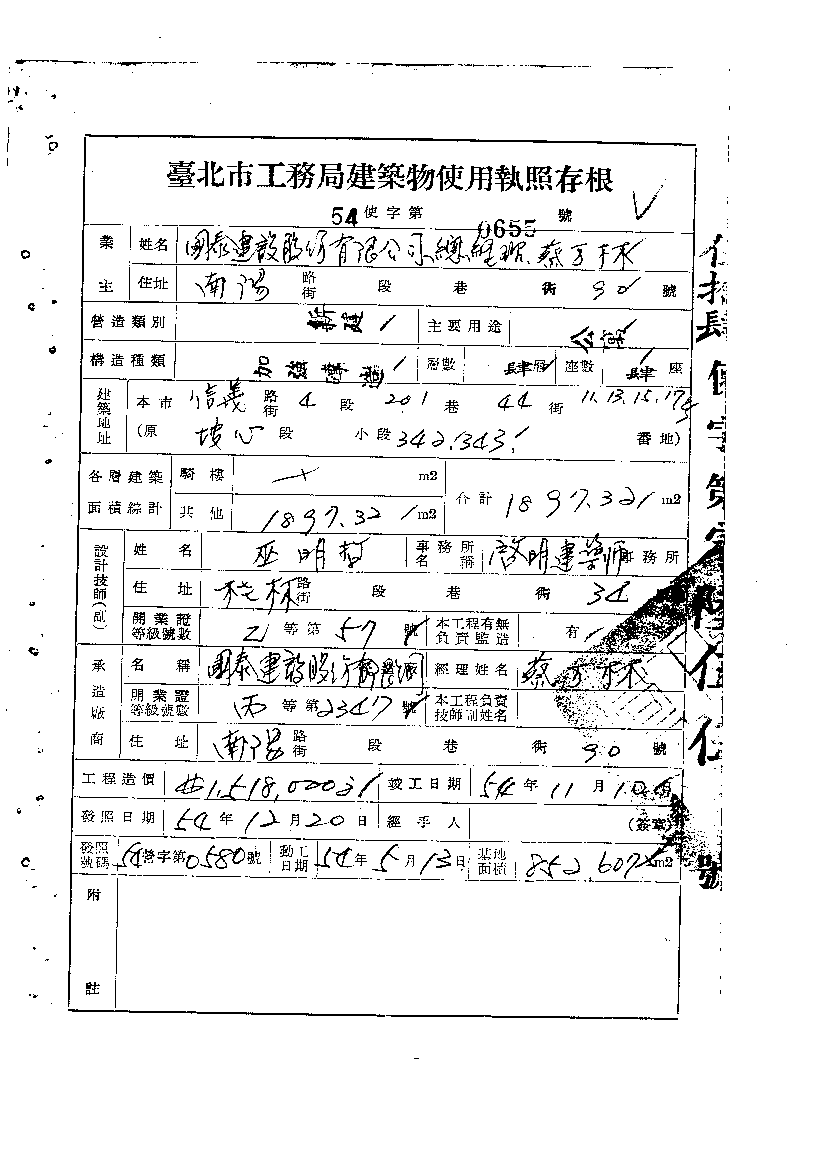 臺北市工務局建築物使用執照存根
54使字第0655號
業主 姓名 國泰建設股份有限公司總經理蔡万林
住址 南陽路街 段 巷 街 90 號
營造類別 新建 主要用途 公寓
構造種類 加強磚造 層數 肆層 座數 肆座
建築地址 本市 信義路街 4段 201巷 44街 11.13.15.17號
(原 坡心段 小段 342.343. 番地)
各層建築面積綜計 騎樓 m2 合計 1897.32 m2
其他 1897.32 m2
設計技師(副) 姓名 巫明哲 事務所名稱 啟明建築師事務所
住址 路街 段 巷 街 34
開業證等級號數 乙等第57號 本工程有無負責監造 有
承造廠商 名稱 國泰建設股份有限公司 經理姓名 蔡万林
開業證等級號數 丙等第2347號 本工程負責技師副姓名
住址 南陽路街 段 巷 街 90 號
工程造價 竣工日期 54年11月10日
發照日期 54年12月20日 經手人 (簽章)
發照號碼 54營字第0580號 動工日期 54年5月13日 基地面積 852.607 m2
附註
伍拾肆使字第零陸伍伍號